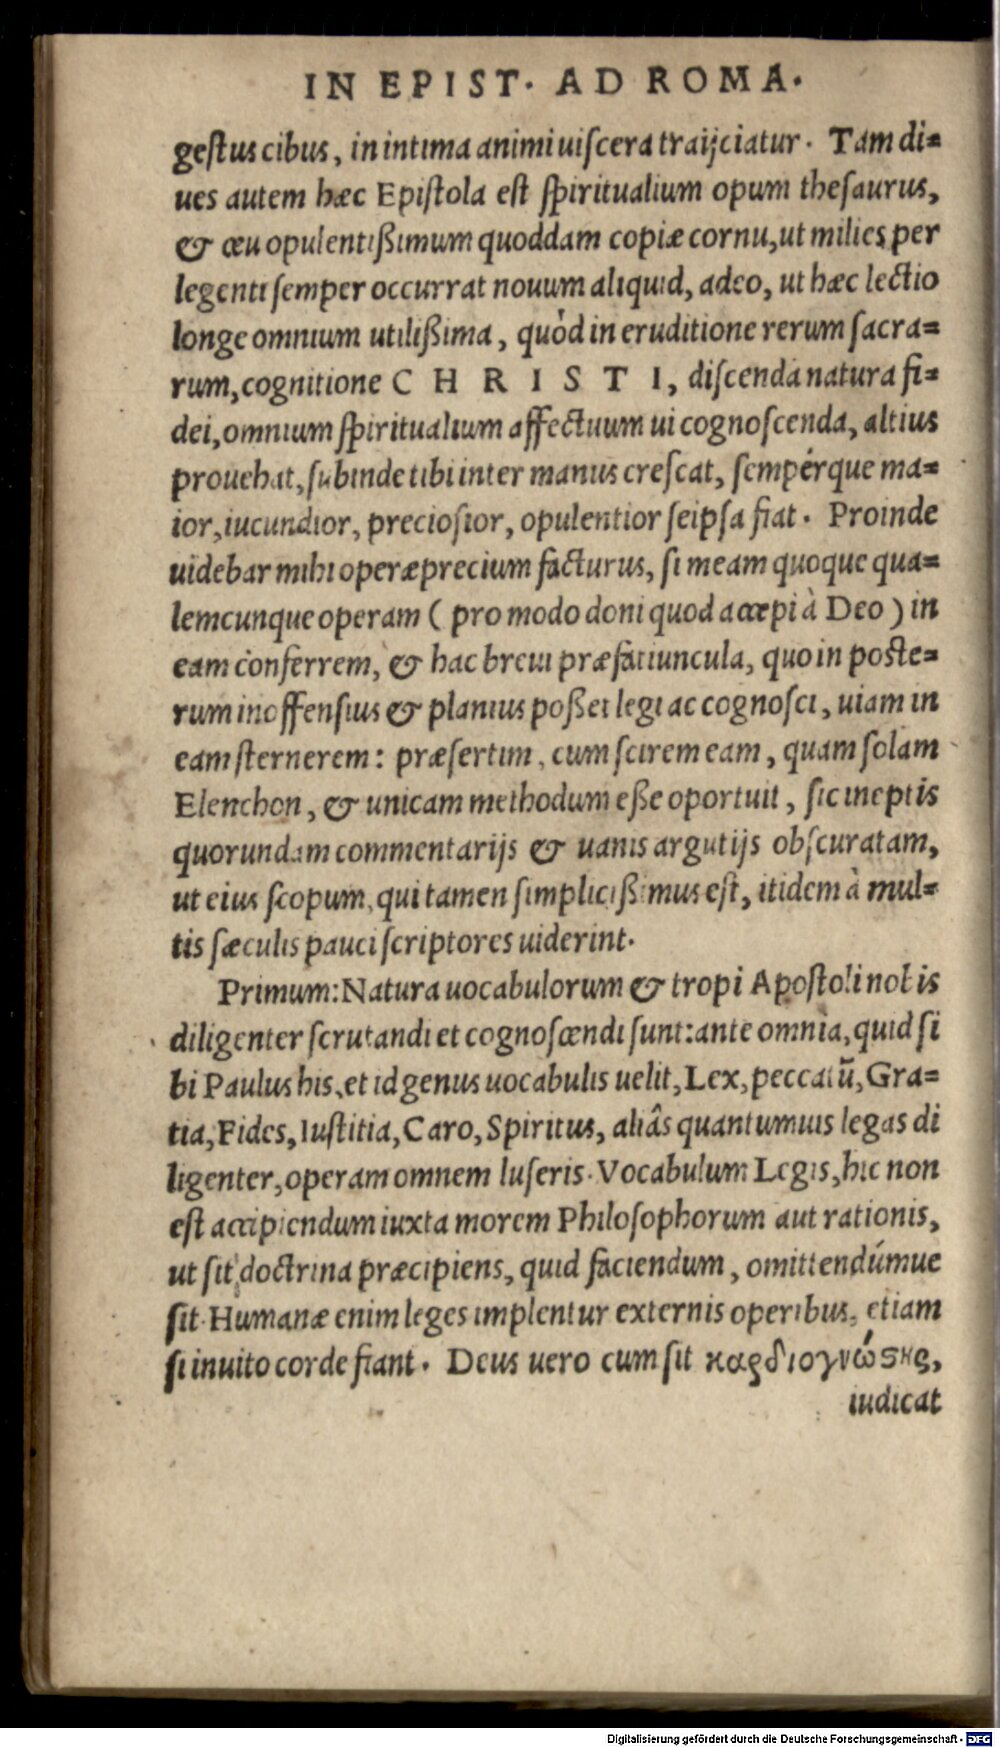 IN EPIST. AD ROMA.
gestus cibus, in intima animi uiscera traijciatur. Tam di=
ues autem hæc Epistola est spiritualium opum thesaurus,
& ceu opulentißimum quoddam copiæ cornu, ut milies per
legenti semper occurrat nouum aliquid, adeo, ut hæc lectio
longe omnium utilißima, quòd in eruditione rerum sacra=
rum, cognitione CHRISTI, discenda natura fi=
dei, omnium spiritualium affectuum ui cognoscenda, altius
prouehat, subinde tibi inter manus crescat, sempérque ma=
ior, iucundior, preciosior, opulentior seipsa fiat. Proinde
uidebar mihi operæprecium facturus, si meam quoque qua=
lemcunque operam ( pro modo doni quod accepi à Deo ) in
eam conferrem, & hac breui præfatiuncula, quo in poste=
rum inoffensius & planius poßet legi ac cognosci, uiam in
eam sternerem: præsertim, cum scirem eam, quam solam
Elenchon, & unicam methodum eße oportuit, sic ineptis
quorundam commentarijs & uanis argutijs obscuratam,
ut eius scopum, qui tamen simplicißimus est, itidem à mul=
tis sæculis pauci scriptores uiderint.
Primum: Natura uocabulorum & tropi Apostoli nobis
diligenter scrutandi et cognoscendi sunt: ante omnia, quid si
bi Paulus his, et id genus uocabulis uelit, Lex, peccatũ, Gra=
tia, Fides, Iustitia, Caro, Spiritus, aliâs quantumuis legas di
ligenter, operam omnem luseris. Vocabulum Legis, hic non
est accipiendum iuxta morem Philosophorum aut rationis,
ut sit doctrina præcipiens, quid faciendum, omittendúmue
sit. Humanæ enim leges implentur externis operibus, etiam
si inuito corde fiant. Deus uero cum sit καρδιογνώστης,
iudicat
Digitalisierung gefördert durch die Deutsche Forschungsgemeinschaft - DFG